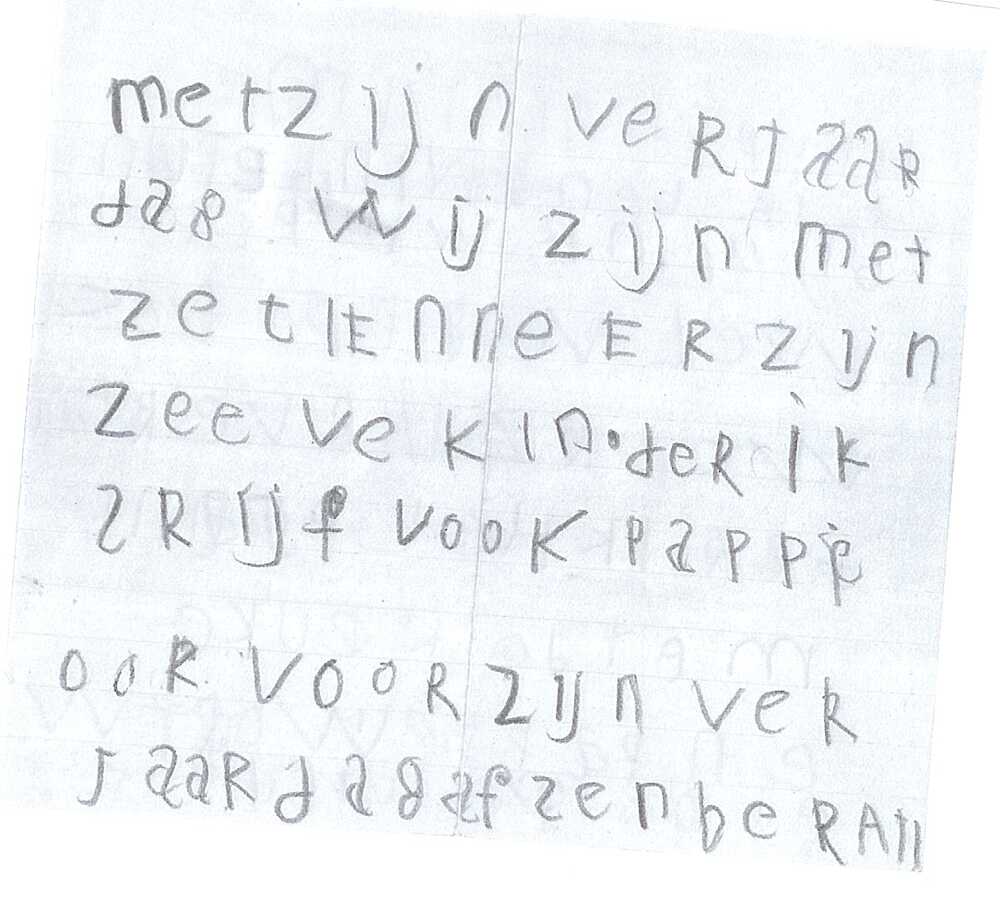 met zijn veRjaaR
dag wij zijn met
zetIEnneER zijn
zeeve kinderik
sRijf vook pappe
ooR vooR zijn vek
jaaRdagafzenbeRAll